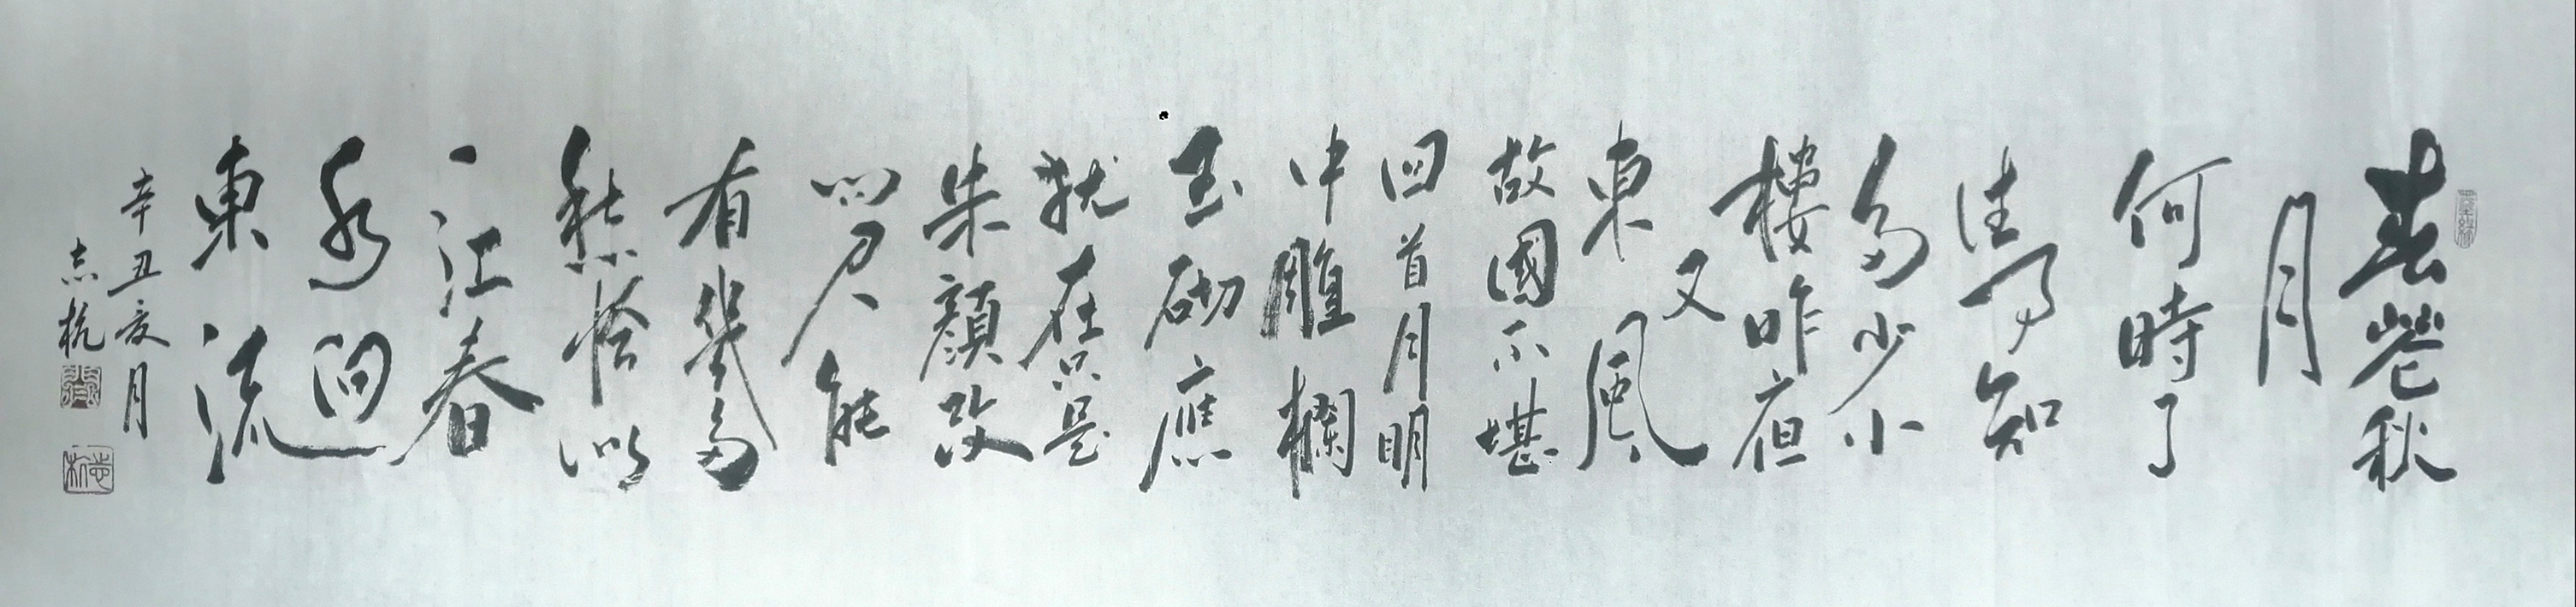 春花秋
月
何時了
往事知
多少小
樓昨夜
又
東風
故國不堪
回首月明
中雕欄
玉砌應
猶在只是
朱顏改
問君能
有幾多
愁恰似
一江春
水向
東流
辛丑亥月
志杭